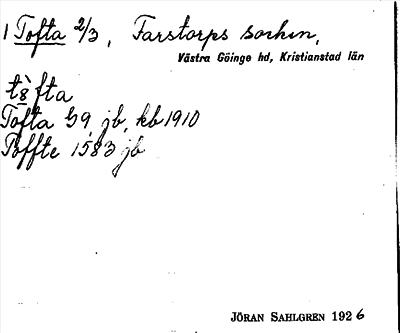 1 Tofta 2/3, Farstorps socken,
Västra Göinge hd, Kristianstad län
Tofta 59, jb, kb 1910
Toffte 1583 jb
JÖRAN SAHLGREN 1926